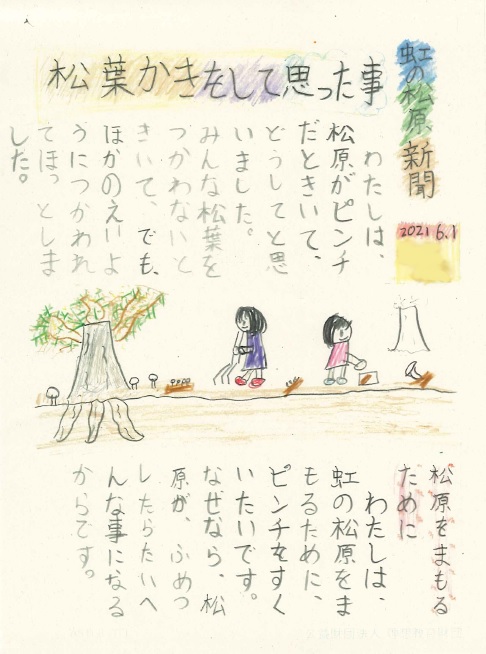 虹の松原新聞
2021 6.1
松葉かきをして思った事
わたしは、
松原がピンチ
だときいて、
どうしてと思
いました。
みんな松葉を
つかわないと
きいて、でも、
ほかのえいよ
うにつかわれ
てほっとしま
した。
松原をまもる
ために
わたしは、
虹の松原をま
もるために、
ピンチをすく
いたいです。
なぜなら、松
原が、ふめっ
したらたいへ
んな事になる
からです。